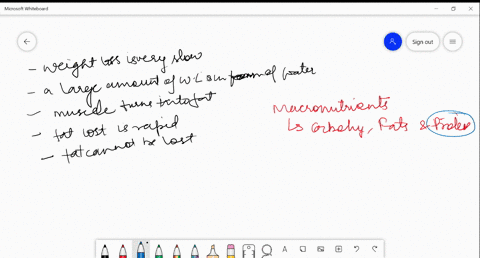 Microsoft Whiteboard
Sign out
- weight loss is very slow
- a large amount of W.L is in form of water
- muscle turns into fat
- fat lost is rapid
- fat cannot be lost
Macronutrients
↳ Carbohy, Fats & Protein